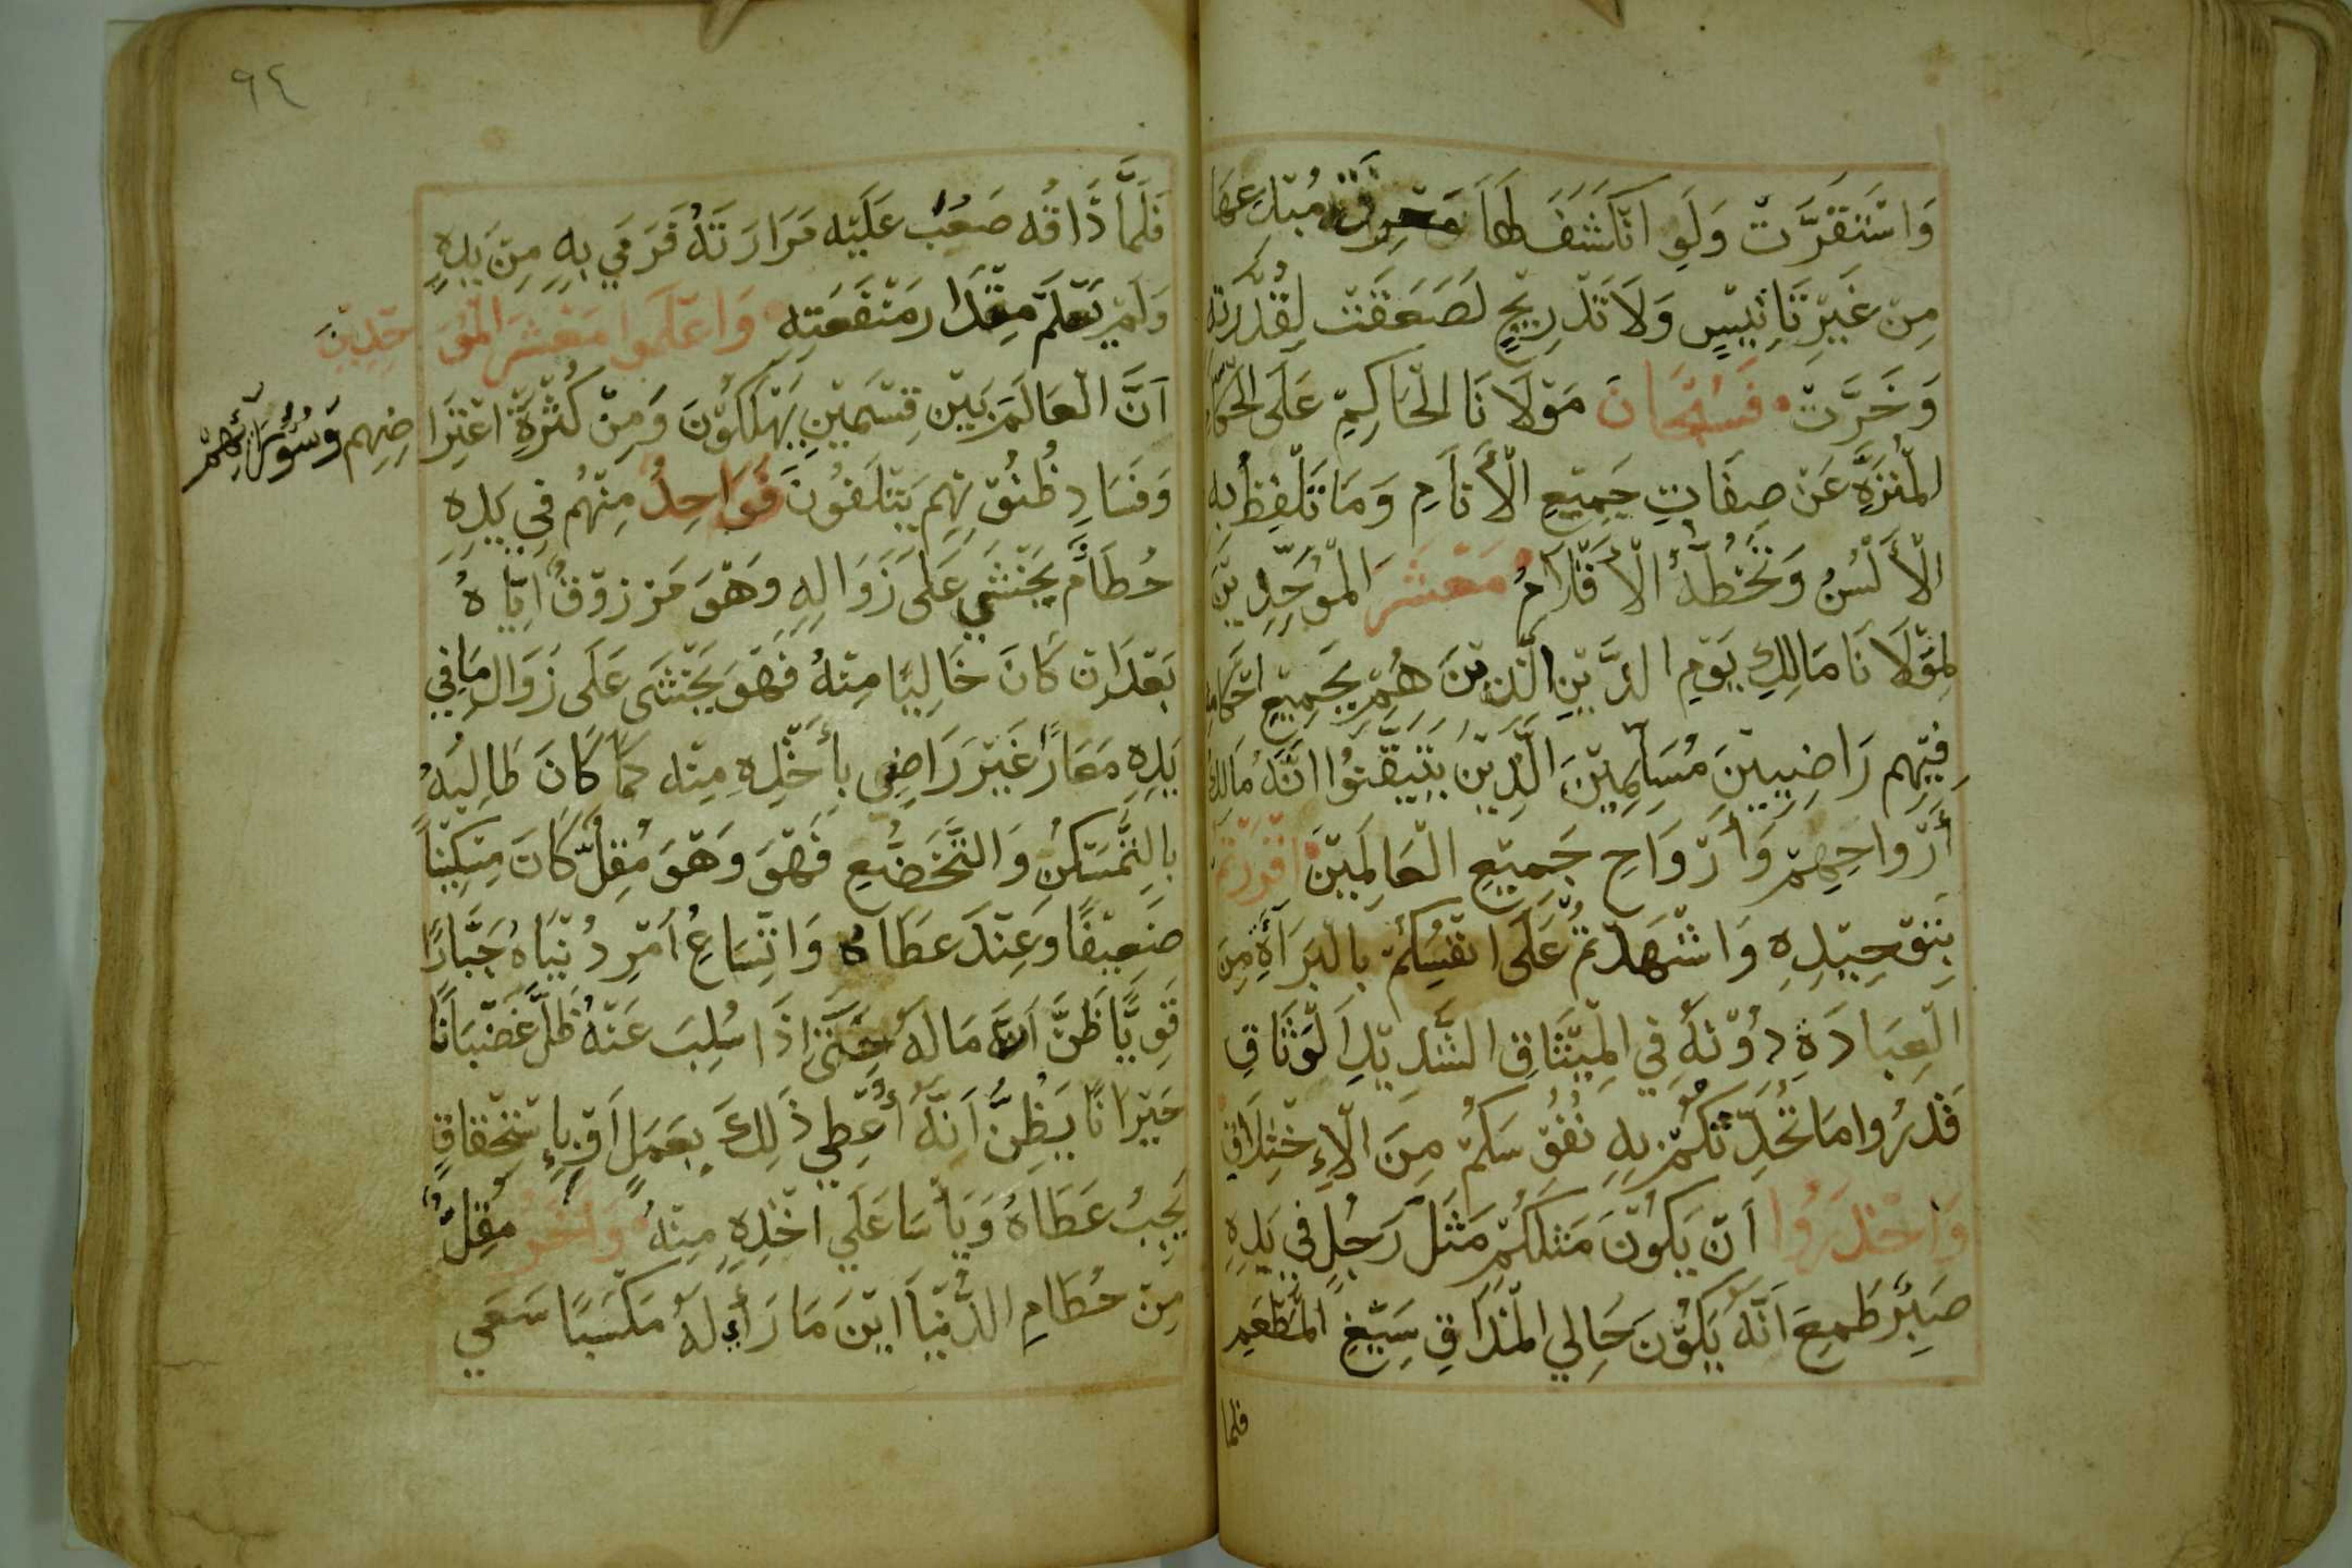 وَاسْتَقَرَّتْ وَلَوِ انْكَشَفَ لَهَا مُبْدِعهَا
مِنْ غَيْرِ تَانِيسٍ وَلَا تَدْرِيجٍ لَصَعَقَتْ لِقُدْرَتِهِ
وَخَرَّتْ فَسُبْحَانَ مَوْلَانَا الْحَاكِمِ عَلَى الْحُكَّام
الْمُنَزَّهِ عَنْ صِفَاتِ جَمِيعِ الْأَنَامِ وَمَا تَلْفِظُ بِهِ
الْأَلْسُنُ وَتَخُطُّهُ الْأَقْلَامُ مَعْشَرَ الْمُوَحِّدِينَ
لِمَوْلَانَا مَالِكِ يَوْمِ الدِّينِ الَّذِينَ هُمْ بِجَمِيعِ احْكَامِهِ
فِيهِم رَاضِيِينَ مُسَلِّمِينَ الَّذِينَ يَتَيَقَّنُوا انَّهُ مَالِكُ
أَرْوَاحِهِمْ وَأَرْوَاحِ جَمِيعِ الْعَالَمِينَ اقْرَرْتُمْ
بِتَوْحِيدِهِ وَاشْهَدْتُمْ عَلَى انْفُسِكُمْ بِالْبَرَآةِ مِنَ
الْعِبَادَةِ دُوْنَهُ فِي الْمِيثَاقِ الشَّدِيدِ الْوَثَاقِ
فَذَرُوا مَا تُحَدِّثكُمْ بِهِ نُفُوسَكُمْ مِنَ الْإِخْتِلَاقِ
وَاحْذَرُوا اَنْ يَكُوْنَ مَثَلَكُمْ مَثَلَ رَجُلٍ فِي يَدِهِ
صَبِرٌ طَمِعَ اَنَّهُ يَكُوْنَ حَالِي الْمَذَاقِ سَيِّغِ الْمَطْعَمِ
فلما
٩٤
فَلَمَّا ذَاقَه صَعُبَ عَلَيْه مَرَارَتَهُ فَرَمَي بِهِ مِنْ يَدِهِ
وَلَمْ يَعْلَمْ مِقْدَار مَنْفَعَتِهِ وَاعْلَمُوا مَعْشَرَ الْمُوَحِّدِيْنَ
اَنَّ الْعَالَمَ بَيْنِ قِسْمَيْنِ يَهْلَكُوْنَ وَمِنْ كُثْرَةِ اعْتِرَاضِهِم وَسُوْءِ رَآئِهِمْ
وَفَسَادِ ظُنُوْنِهِمْ يَتْلَفُوْنَ فَوَاحِدُ مِنْهُم فِي يَدِهِ
حُطَامٌ يَخْشَي عَلَى زَوَالِهِ وَهْوَ مَرْزُوْقٌ اِيَّاهُ
بَعْدَ انْ كَانَ خَالِيًا مِنْهُ فَهْوَ يَخْشَى عَلَى زَوَالِ مَا فِي
يَدِهِ مَعَارًا غَيْرَ رَاضِي بِأَخْذِهِ مِنْه كَمَا كَانَ طَالِبَهُ
بِالتَّمَسْكُنِ وَالتَّخَضُّعِ فَهْوَ وَهْوَ مُقِلٌّ كَانَ مِسْكِيْنًا
ضَعِيْفًا وَعِنْدَ عَطَاهُ وَاتِّسَاعِ اَمْرِ دُنْيَاهُ جَبَّارًا
قَوِيًّا ظَنَّ اَنَّهُ مَالَهُ حَتَّى اِذَا سُلِبَ عَنْهُ ظَلَّ غَضْبَانًا
حَيْرَانًا يَظُنُّ اَنَّهُ أُعْطِي ذَلِكَ بِعَمَلٍ اَوْ بِاِسْتِحْقَاقٍ
يَجِبُ عَطَاهُ وَيَأْسَا عَلَي اخْذِهِ مِنْهُ وَاخَرُ مُقِلٌّ
مِنْ حُطَامِ الدُّنْيَا ايْنَ مَا رَأَي لَهُ مَكْسَبًا سَعَي